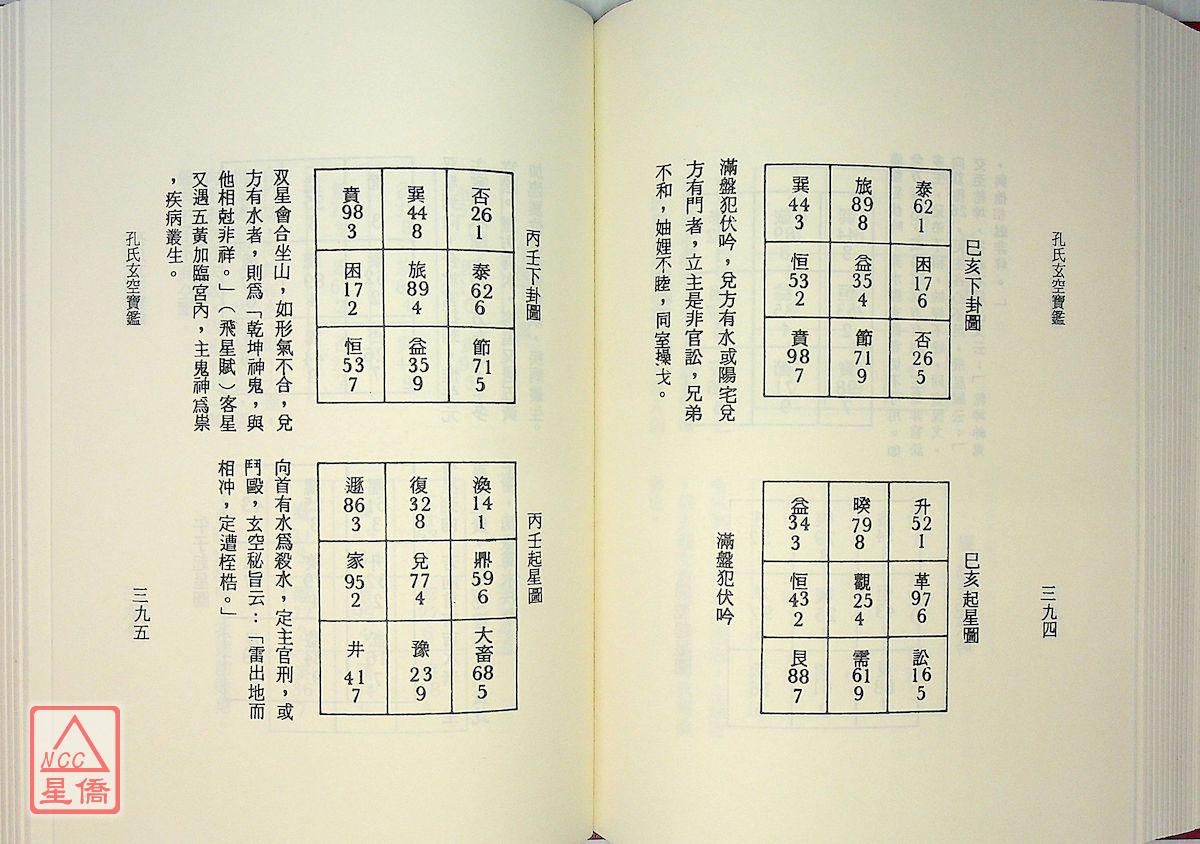 孔氏玄空寶鑑
三九四
巳亥下卦圖
巽 旅 泰
44 89 62
3 8 1
恒 益 困
53 35 17
2 4 6
賁 節 否
98 71 26
7 9 5
滿盤犯伏吟，兌方有水或陽宅兌
方有門者，立主是非官訟，兄弟
不和，妯娌不睦，同室操戈。
巳亥起星圖
益 暌 升
34 79 52
3 8 1
恒 觀 革
43 25 97
2 4 6
艮 需 訟
88 61 16
7 9 5
滿盤犯伏吟
丙壬下卦圖
賁 巽 否
98 44 26
3 8 1
困 旅 泰
17 89 62
2 4 6
恒 益 節
53 35 71
7 9 5
双星會合坐山，如形氣不合，兌
方有水者，則爲「乾坤神鬼，與
他相尅非祥。」（飛星賦）客星
又遇五黃加臨宮內，主鬼神爲祟
，疾病叢生。
丙壬起星圖
遯 復 渙
86 32 14
3 8 1
家 兌 鼎
95 77 59
2 4 6
井 豫 大畜
41 23 68
7 9 5
向首有水爲殺水，定主官刑，或
鬥毆，玄空秘旨云：「雷出地而
相冲，定遭桎梏。」
孔氏玄空寶鑑
三九五
NCC
星僑